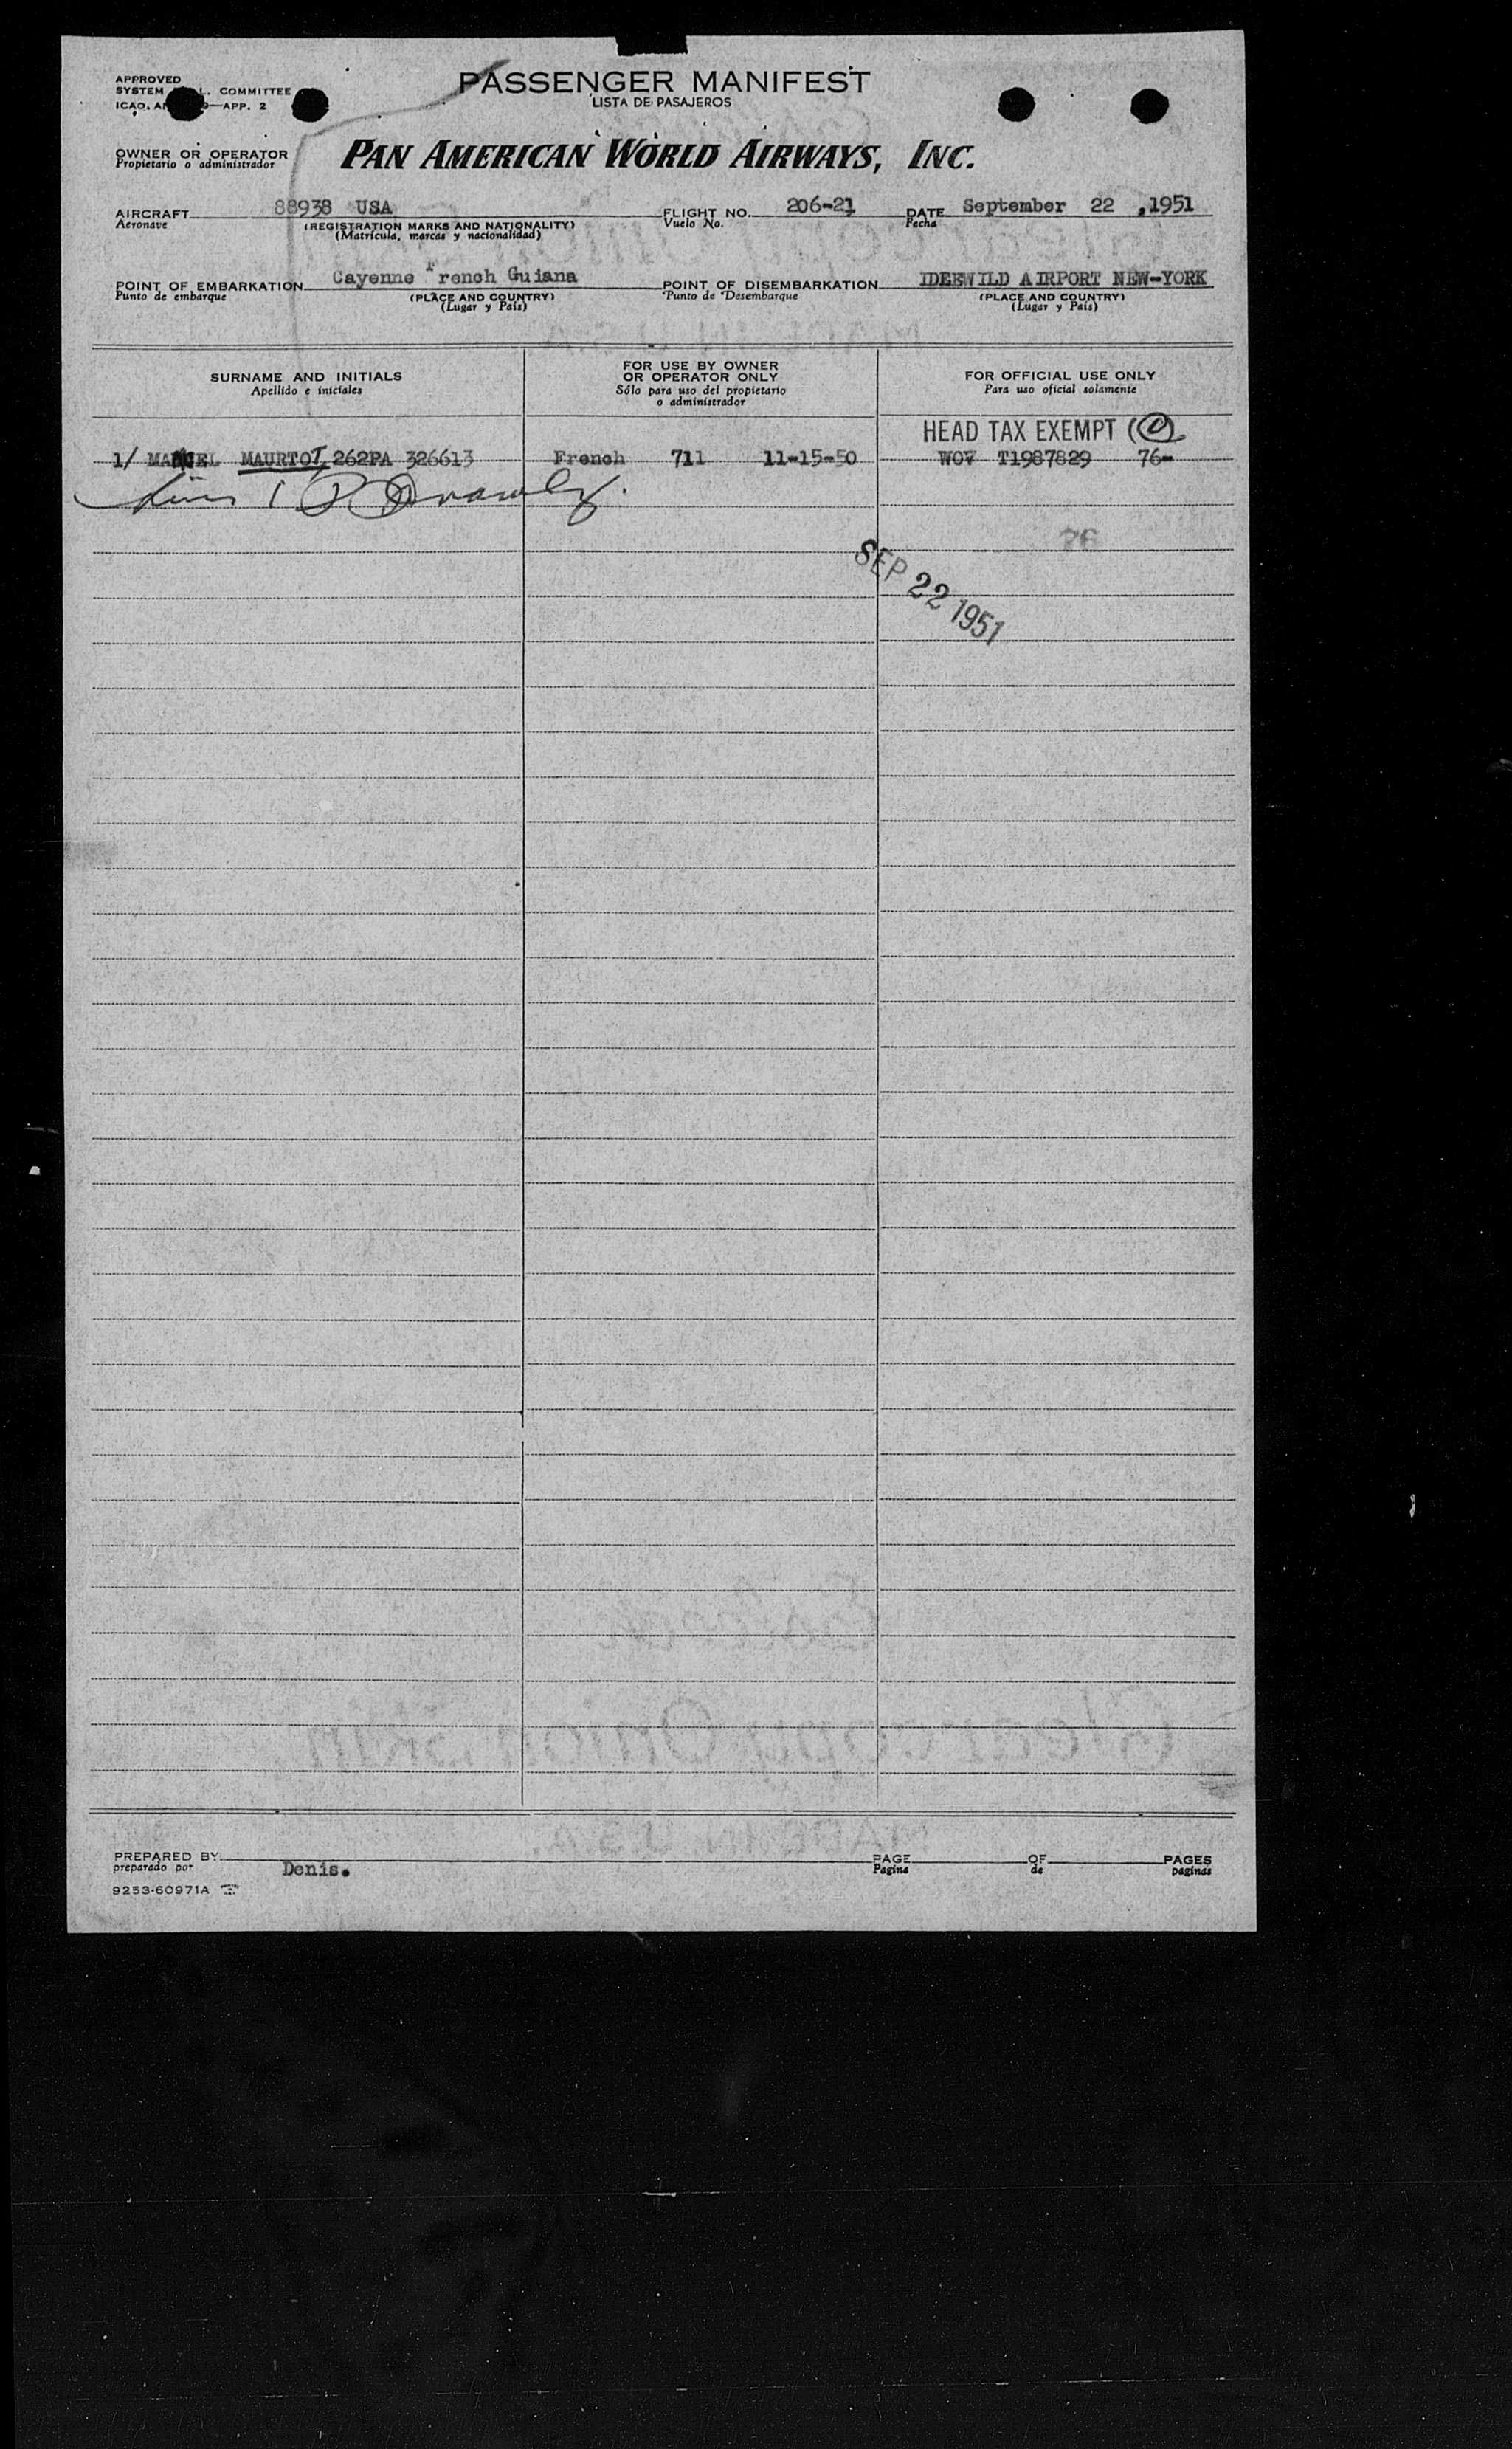 APPROVED
SYSTEM L. COMMITTEE
ICAO. AN 9—APP. 2
PASSENGER MANIFEST
LISTA DE PASAJEROS
OWNER OR OPERATOR
Propietario o administrador
PAN AMERICAN WORLD AIRWAYS, INC.
AIRCRAFT 88938 USA FLIGHT NO. 206-21 DATE September 22 ,1951
Aeronave (REGISTRATION MARKS AND NATIONALITY) Vuelo No. Fecha
(Matrícula, marcas y nacionalidad)
POINT OF EMBARKATION Cayenne French Guiana POINT OF DISEMBARKATION IDEEWILD AIRPORT NEW-YORK
Punto de embarque (PLACE AND COUNTRY) Punto de Desembarque (PLACE AND COUNTRY)
(Lugar y País) (Lugar y País)
SURNAME AND INITIALS
Apellido e iniciales
FOR USE BY OWNER
OR OPERATOR ONLY
Sólo para uso del propietario
o administrador
FOR OFFICIAL USE ONLY
Para uso oficial solamente
HEAD TAX EXEMPT
1/ MAURTOT 262PA 326613 French 711 11-15-50 WOV T1987829 76-
76
SEP 22 1951
Clearcopy Onion Skin
MADE IN U.S.A.
PREPARED BY Denis. PAGE OF PAGES
preparado por Pagina de paginas
9253-60971A